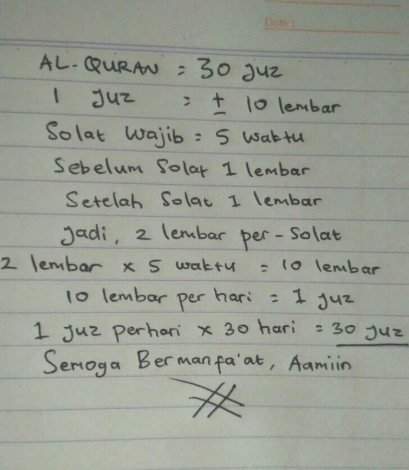 Date :
AL-QURAN = 30 Juz
1 Juz = ± 10 lembar
Solat Wajib = 5 waktu
Sebelum Solat 1 lembar
Setelah Solat 1 lembar
Jadi, 2 lembar per-Solat
2 lembar x 5 waktu = 10 lembar
10 lembar per hari = 1 Juz
1 Juz perhari x 30 hari = 30 Juz
Semoga Bermanfa'at, Aamiin